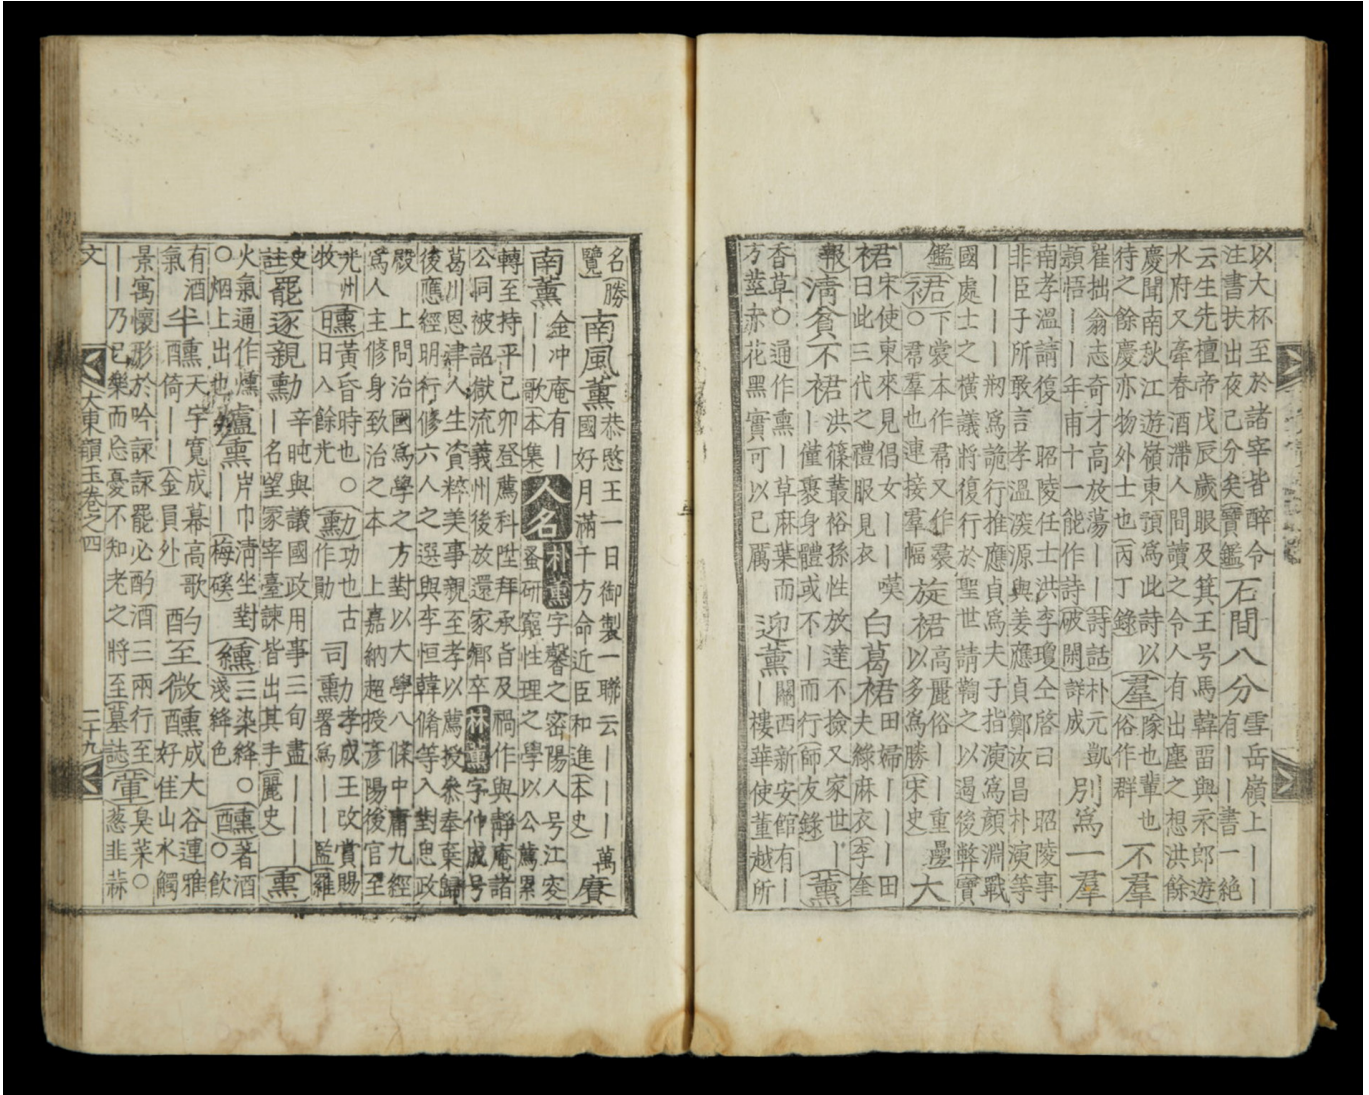 以大杯至於諸宰皆醉令
注書扶出夜已分矣寶鑑
石間八分
雪岳嶺上丨丨
有丨丨書一絶
云生先檀帝戊辰歲眼及箕王号馬韓畱與永郎遊
水府又牽春酒滯人間讀之令人有出塵之想洪餘
慶聞南秋江遊嶺東預爲此詩以
待之餘慶亦物外士也丙丁錄
羣
隊也輩也
俗作群
不羣
崔拙翁志奇才高放蕩丨丨詩話朴元凱
穎悟丨丨年甫十一能作詩破閑詳成
別爲一羣
南孝溫請復 昭陵任士洪李瓊仝啓曰 昭陵事
非臣子所敢言孝溫深源與姜應貞鄭汝昌朴演等
丨丨丨丨刱爲詭行推應貞爲夫子指演爲顏淵戰
國處士之橫議將復行於聖世請鞫之以遏後弊寶
鑑
裙
下裳本作帬又作裠
○帬羣也連接羣幅
旋裙
高麗俗丨丨重疊
以多爲勝宋史
大
裙
宋使東來見倡女丨丨嘆
曰此三代之禮服見衣
白葛裙
田婦丨丨丨田
夫綠麻衣李奎
報
淸貧不裙
洪篠叢裕孫性放達不撿又家世丨
丨僅褁身體或不丨而行師友錄
薰
香草○通作熏丨草麻葉而
方莖赤花黑實可以已厲
迎薰
關西新安館有丨
丨樓華使董越所
名勝
覽
南風薰
恭愍王一日御製一聯云丨丨丨丨萬
國好月滿千方命近臣和進本史
賡
南薰
金冲庵有丨
丨歌本集
人名
朴薰
字馨之密陽人号江叟
蚤硏窮性理之學以公薦累
轉至持平己卯登薦科陞拜承旨及禍作與靜庵諸
公同被詔獄流義州後放還家鄕卒
林薰
字仲成号
葛川恩津人生資粹美事親至孝以薦授叅奉棄歸
後應經明行修六人之選與李恒韓脩等入對思政
殿 上問治國爲學之方對以大學八條中庸九經
爲人主修身致治之本 上嘉納超授彦陽後官至
光州
牧
曛
黃昏時也○
日入餘光
勳
功也古
作勛
司勳
孝成王改賞賜
署爲丨丨監羅
史
註
罷逐親勳
辛旽與議國政用事三旬盡丨
丨名望冢宰臺諫皆出其手麗史
熏
火氣通作燻
○烟上出也
爐熏
岸巾淸坐對
丨丨梅磎
纁
三染絳○
淺絳色
醺
著酒
○飮
有酒
氣
半醺
天宇寬成幕高歌
酣倚丨丨金員外
酌至微醺
成大谷運雅
好佳山水觸
景寓懷形於吟詠詠罷必酌酒三兩行至
丨丨乃已樂而忘憂不知老之將至墓誌
葷
臭菜○
葱韭蒜
文
大東韻玉卷之四
二十九